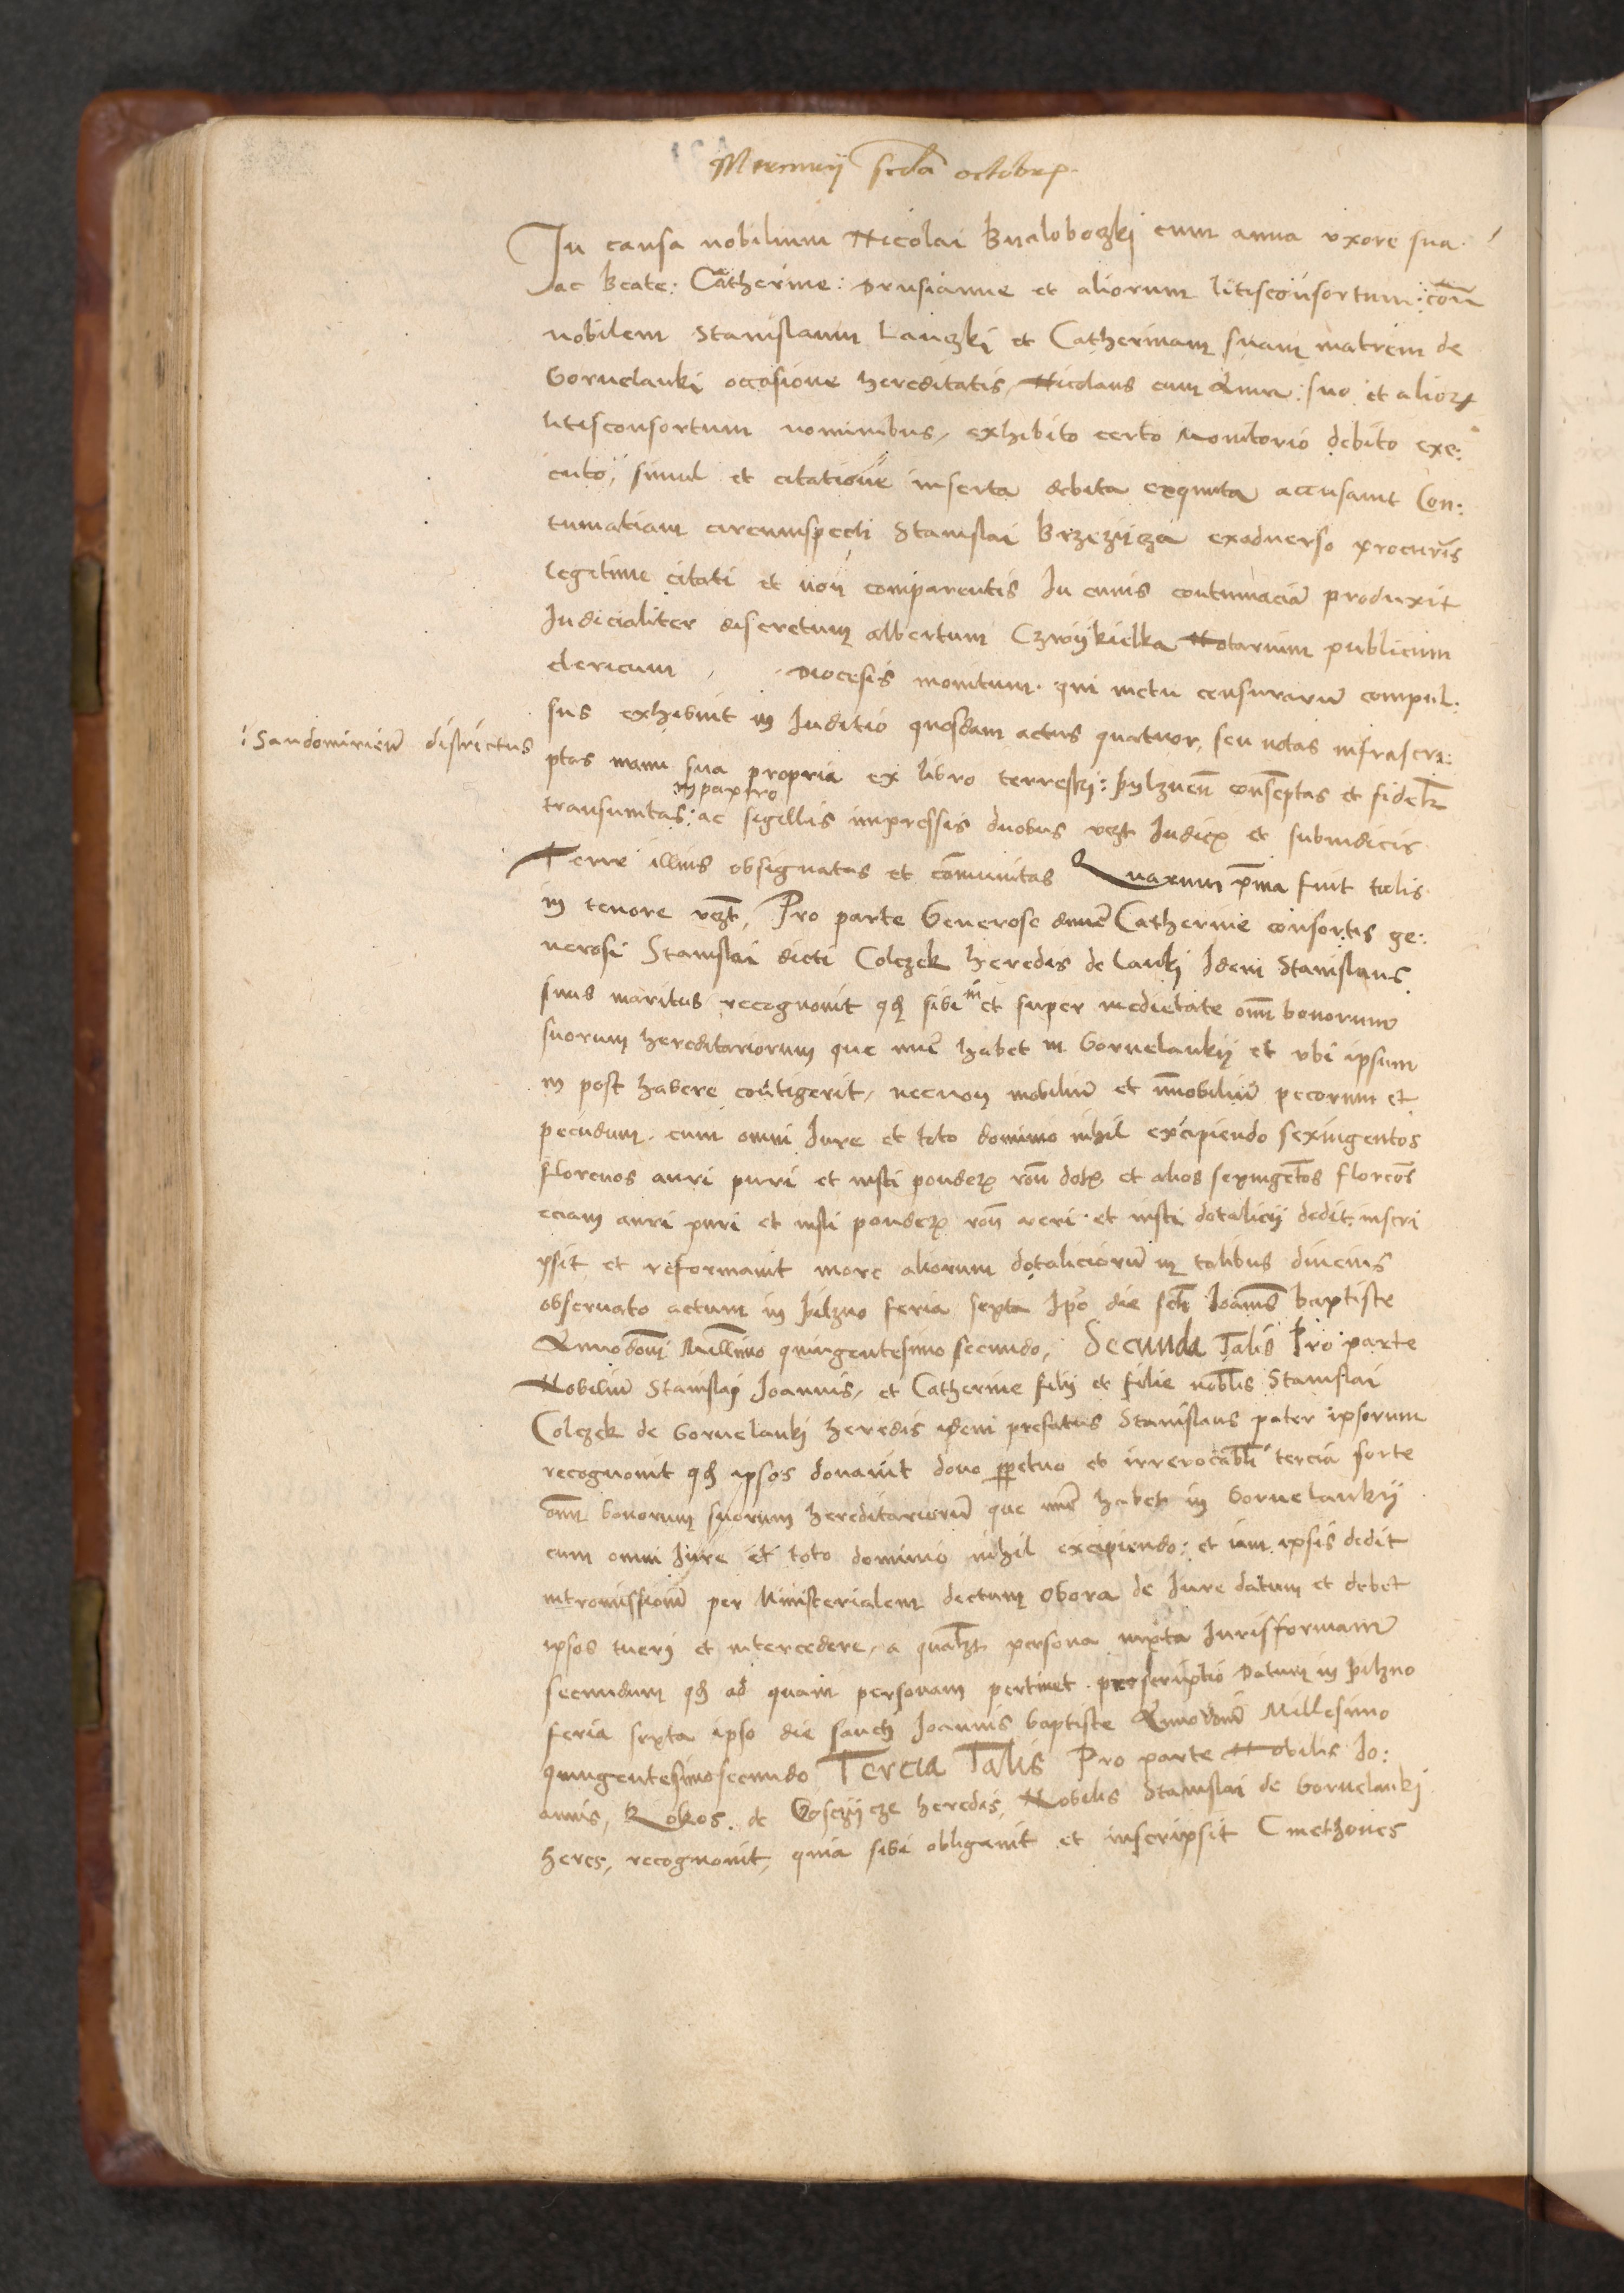 Mercurij scda octobr
In causa nobilium Nicolai Bnaloboczki cum anna vxore sua
ac Beate: Catherine: Drusianne et aliorum litisconsortum: con
nobilem Stanislaum Lanczki et Catherinam suam matrem de
Gornelanki occasione hereditatis, Nicolaus cum Anna: suo et alior
litisconsortum nominibus, exhibito certo Monitorio debito exe:
cuto, simul et citatione inserta debita exequuta accusauit Con:
tumatiam circumspecti Stanislai Brzezicza exaduerso procuris
legitime citati et non comparentis In cuius contumacia produxit
Judicialiter discretum albertum Czwykielka Notarium publicum
clericum , Diocesis monitum. qui metu censuraru compul:
sus exhibuit in Juditio quosdam actus quatuor, seu notas infrascri:
: Sandomirien districtus
ptas manu sua propria ex libro terrestri: pylznen conscptas et fidelr
in papiro
transumtas: ac sigillis impressis duobus vczt Judicis et subiudicis
Terre illius obsignatas et comunitas Quarum pma fuit talis
in tenore vczt, Pro parte Generose dnne Catherine consortis ge:
nerosi Stanislai dicti Colczek heredis de Lanki Idem Stanislaus
suus maritus recognouit q sibi in et super medietate omn bonorum
suorum hereditariorum que nnc habet in Gornelankij et vbi ipsum
in post habere contigerit, necnon mobiliu et imobiliu pecorum et
pecudum. cum omni Iure et toto dominio nihil excipiendo sexingentos
florenos auri puri et iusti ponderis ron dotis et alios sexingetos floreos
eciam auri puri et iusti ponderis ron veri et iusti dotalicij dedit inscri
psit et reformauit more aliorum dotaliciorum in talibus diucius
obseruato actum in pilzno feria sexta Ipo die scti Joannis baptiste
Anno domi Millimo quingentesimo secundo, Secunda Talis Pro parte
Nobiliu Stanislaj Joannis, et Catherine filij et filie noblis Stanislai
Colczek de Gornelankj heredis idem prefatus Stanislaus pater ipsorum
recognouit q ipsos donauit dono ppetuo et irreuocabli tercia sorte
omn bonorum suorum hereditarioru que nnc habet in Gornelankij
cum omni Iure et toto dominio nihil excipiendo: et iam ipsis dedit
intromissionu per Ministerialem dictum Obora de Iure datum et debet
ipsos tuerj et intercedere, a qualzt persona iuxta Iurisformam
secundum q ad quam personam pertinet proscriptio Datum in pilzno
feria sexta ipso die sancti Joannis baptiste Anno domi Millesimo
quingentesimosecundo Tercia Talis Pro parte Nobilis Jo:
annis, Rokos. de Goscyycze heredis, Nobilis Stanislai de Gornelankj
heres, recognouit, quia sibi obligauit et inscripsit Cmethones